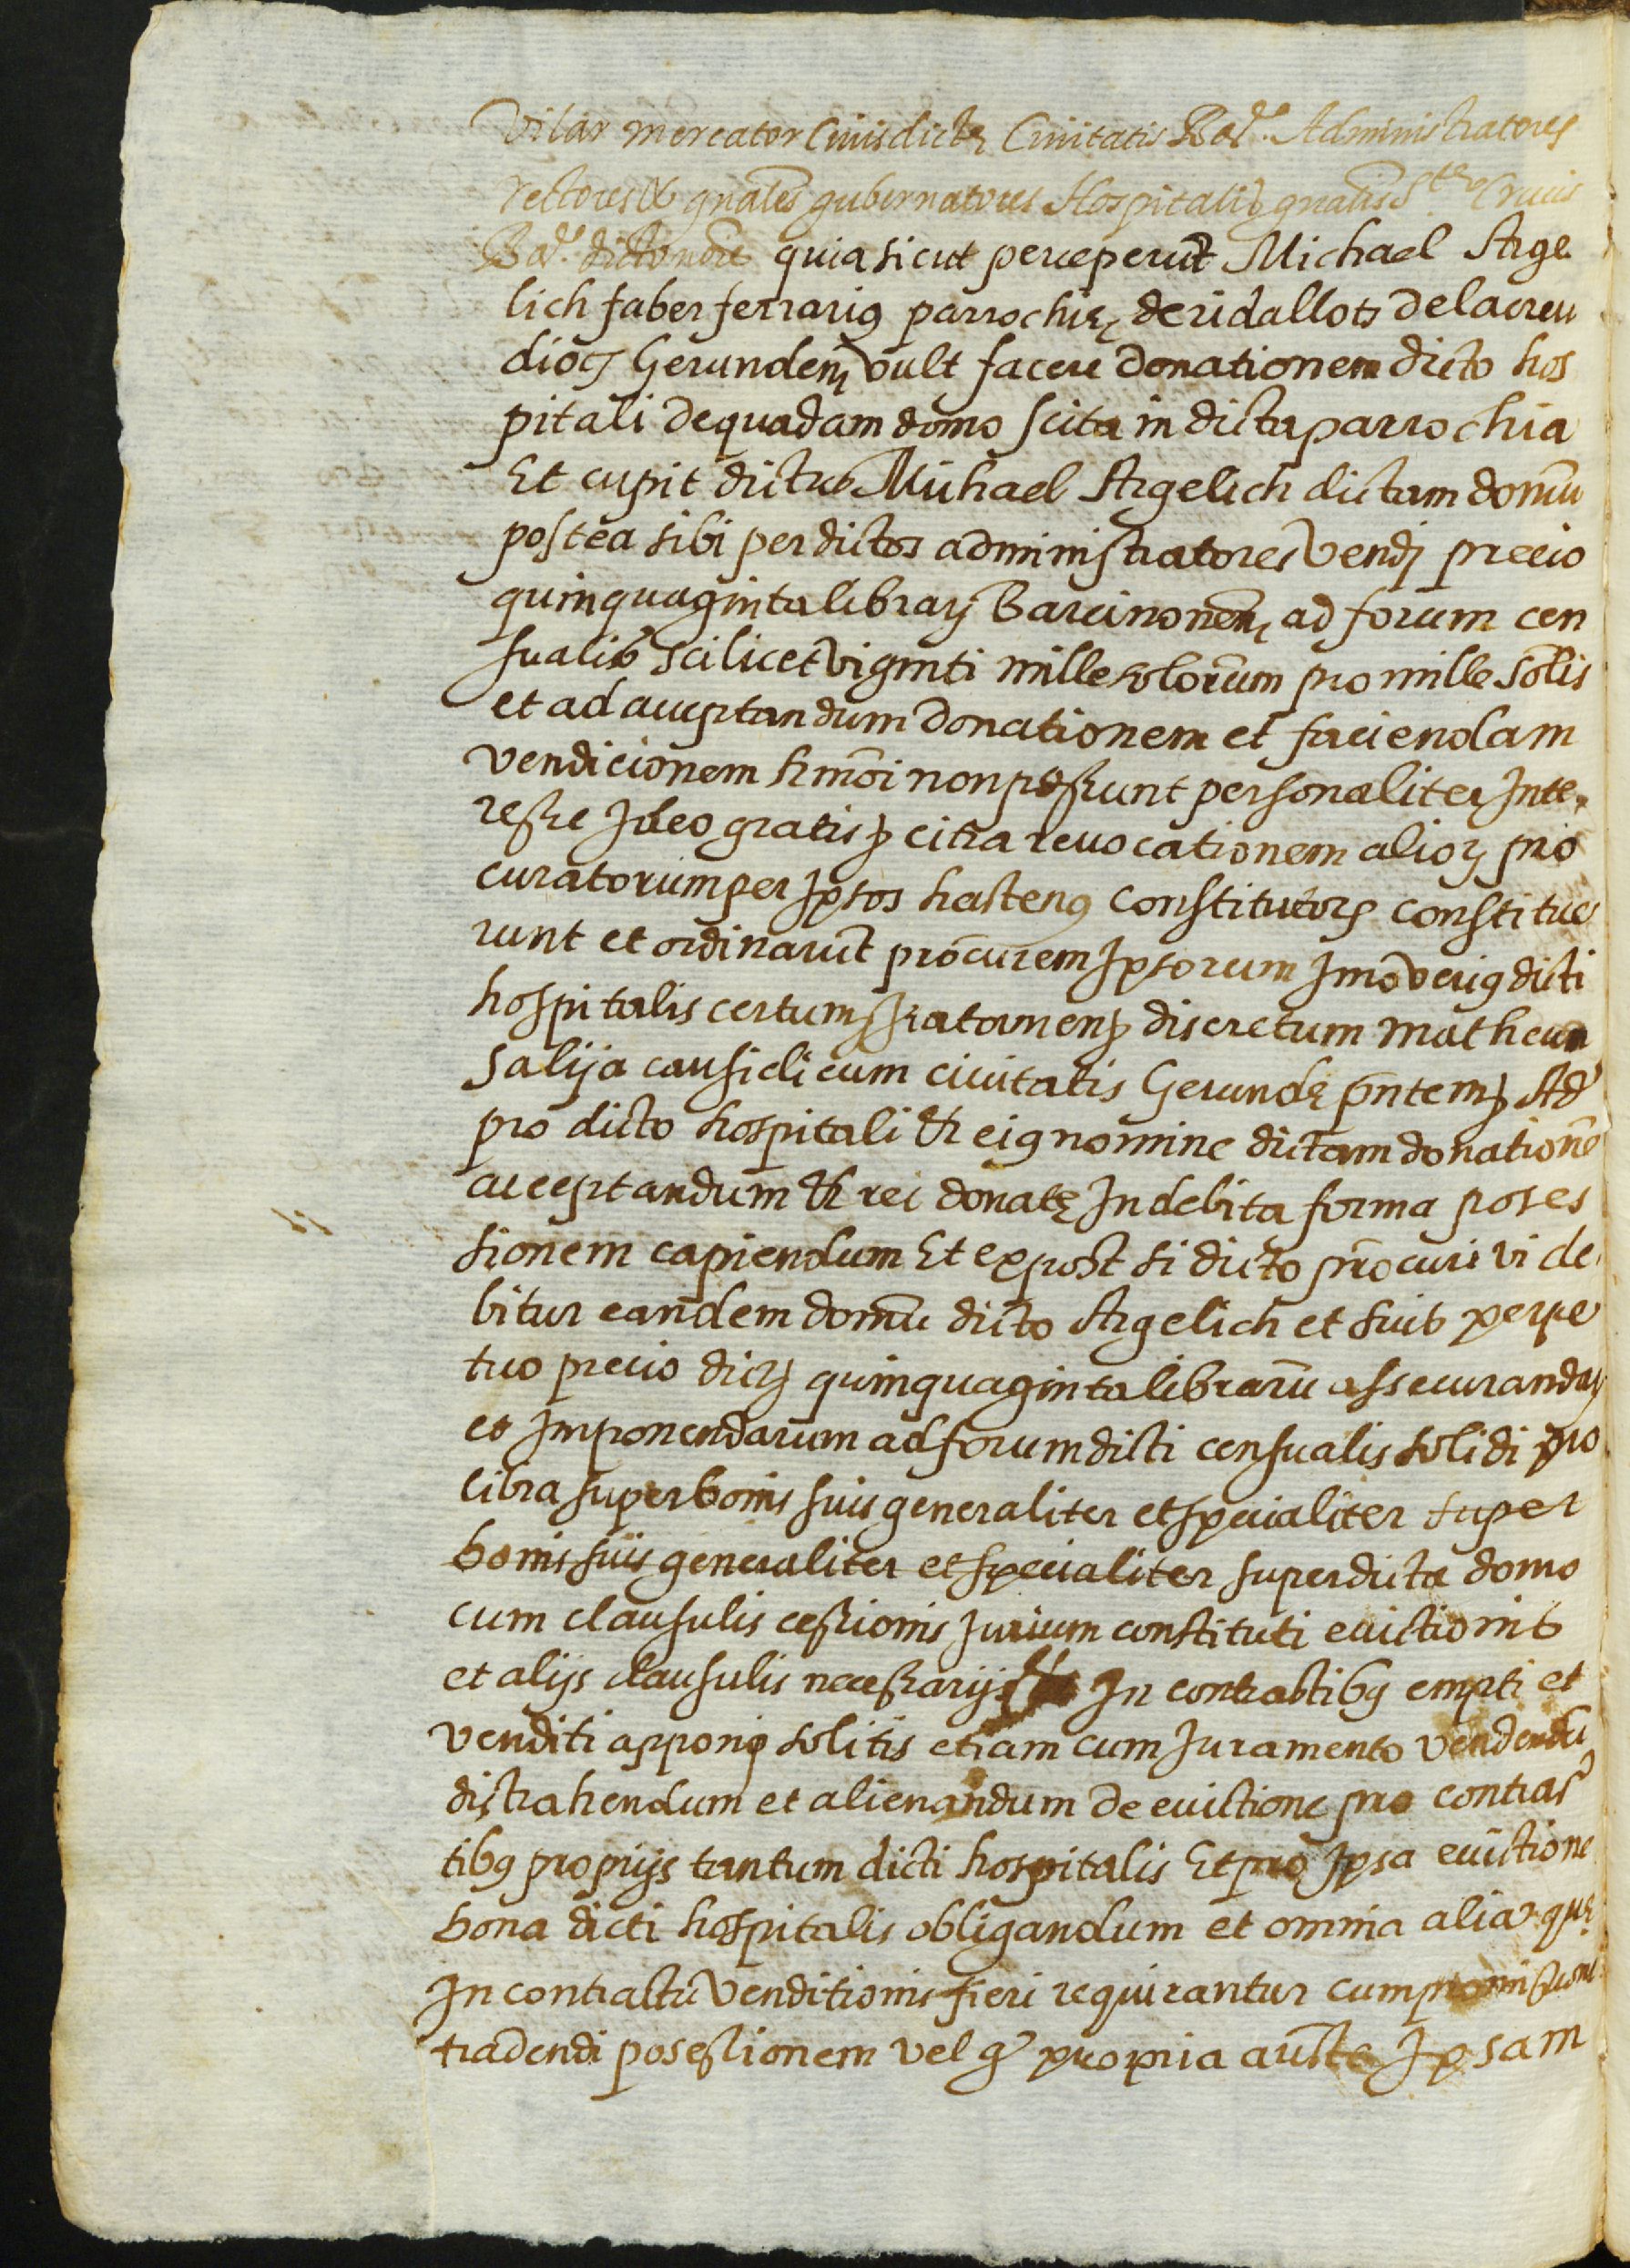 Vilar mercator Civis dictę Civitatis Bar. Administratores
rectores & gnāles gubernatores Hospitalis gnālis Stę Crucis
Bar. dicto noīe quia sicut perceperūt Michael Arge
lich faber ferrarius parrochię de ridallots de la creu
dioc Gerunden̄ vult facere donationem dicto hos
pitali de quadam domo scita in dicta parrochia
Et cupit dictus Michael Argelich dictam domū
postea sibi per dictos administratores vendj precio
quinquaginta librarꝝ Barcinonen̄ ad forum cen
sualis scilicet viginti mille solorūm pro mille solis
et ad acceptandum donationem et faciendam
vendicionem simōi non possunt personaliter Inte
resse Ideo gratis citra revocationem aliorꝝ pro
curatorum per Ipsos hactenus constitutorꝝ constitue
runt et ordinarūt procūrem Ipsorum Imō verius dicti
hospitalis certum ita tamen discretum matheum
Salija causidicum civitatis Gerundę pn̄tem Ad
pro dicto hospitali & eius nomine dictam donationē
acceptandum & rei donatę In debita forma poses
sionem capiendum Et expost si dicto procūri vide
bitur eandem domū dicto Argelich et suis perpe
tuo precio dictꝝ quinquaginta librarū assecurandarꝝ
et Imponendarum ad forum dicti censualis solidi pro
libra super bonis suis generaliter et specialiter super
bonis suis generaliter et specialiter super dicta domo
cum clausulis cessionis Jurium constituti evictionis
et alijs clausulis necessarijs In contractibus empti et
venditi apponj solitis etiam cum Juramento vendendū
distrahendum et alienandum De evictione pro contrac
tibus proprijs tantum dicti hospitalis Et pro Ipsa evictione
bona dicti hospitalis obligandum et omnia alia quę
In contractū venditionis fieri requirantur cum promissione
tradendi posessionem vel q propria aucte Ipsam